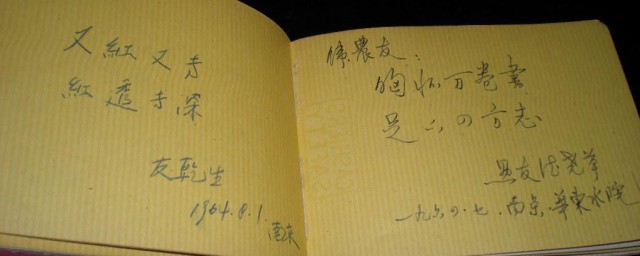 又紅又专
紅透专深
友乾生
1964.8.1.
南京
農友：
胸怀万卷書
四方志
友
一九六四.七.南京.華東水院